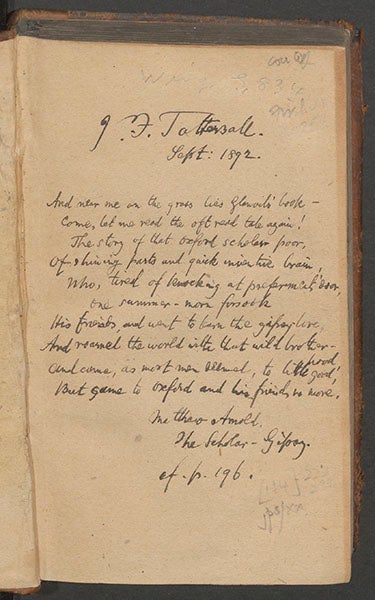 J. F. Tattersall.
Sept: 1892.
And near me on the grass lies Glanvil's book –
Come, let me read the oft read tale again!
The story of that Oxford scholar poor,
Of shining parts and quick inventive brain,
Who, tired of knocking at preferment's door,
One summer-morn forsook
His friends, and went to learn the gipsy lore,
And roamed the world with that wild brother-
hood
And came, as most men deemed, to little good,
But came to Oxford and his friends no more.
Matthew Arnold.
The Scholar-Gipsy.
cf. p. 196.